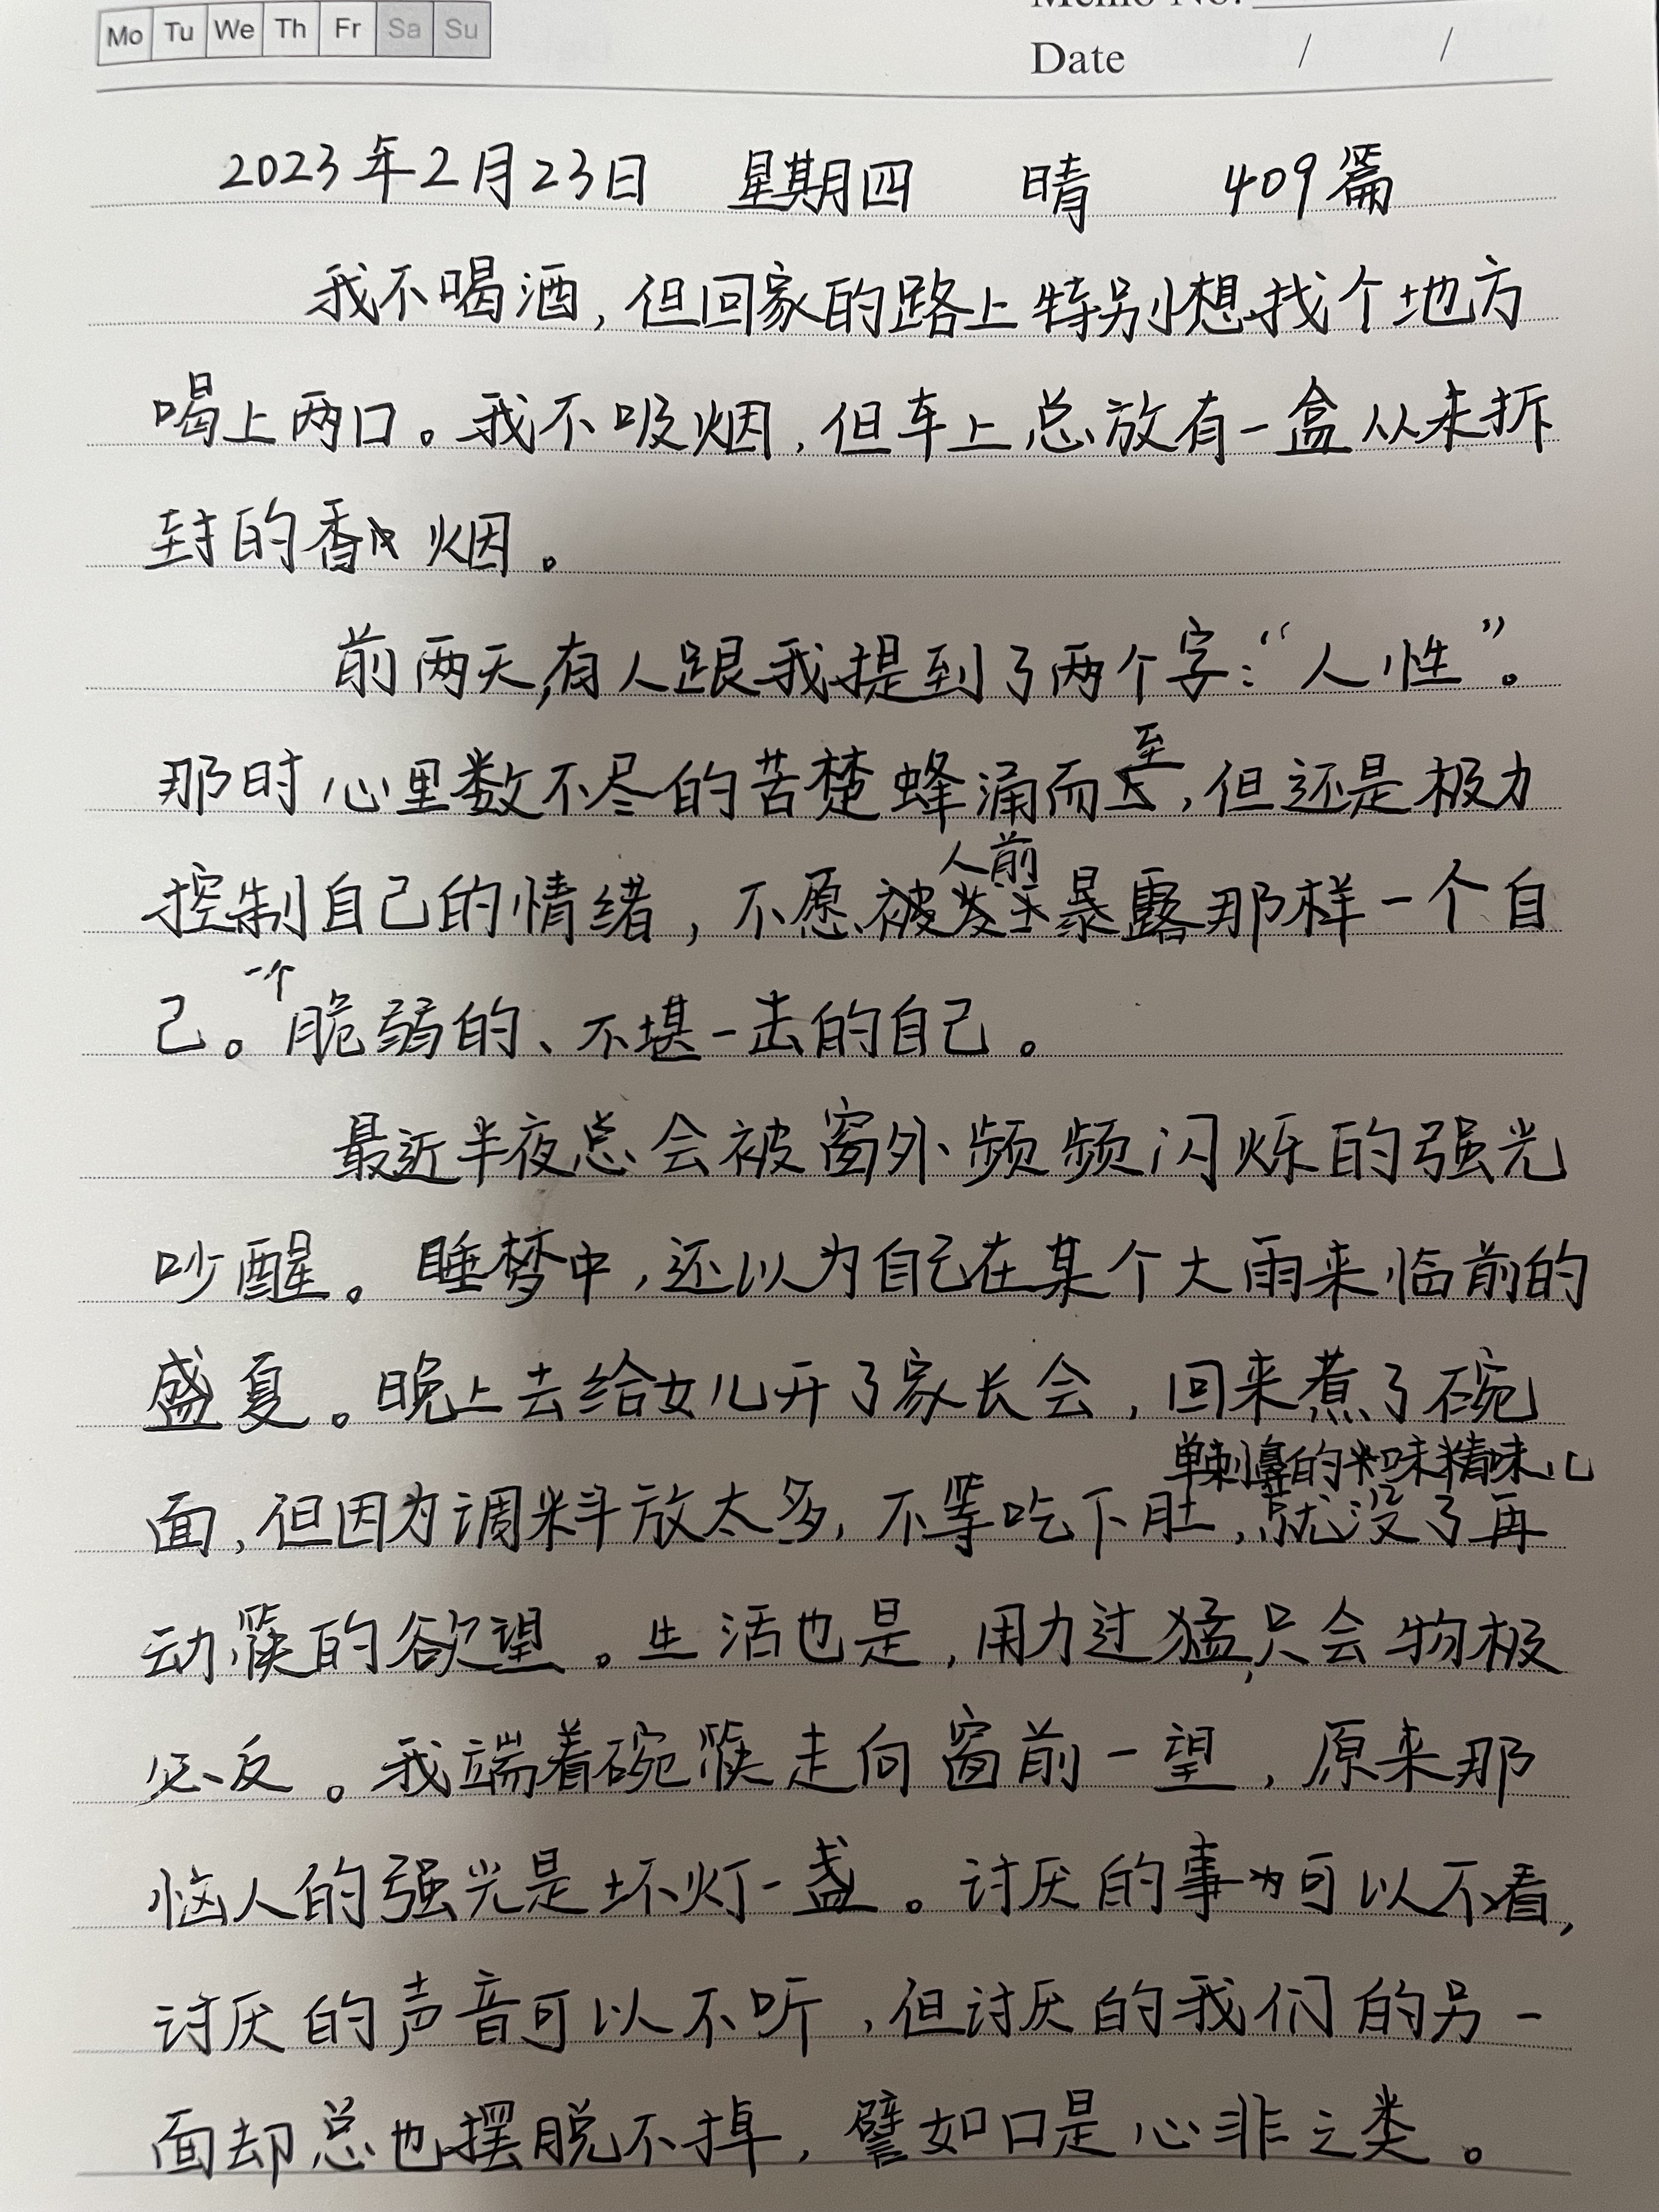 Mo Tu We Th Fr Sa Su
Memo No.
Date / /
2023年2月23日 星期四 晴 409篇
我不喝酒,但回家的路上特别想找个地方
喝上两口。我不吸烟,但车上总放有一盒从未拆
封的香烟。
前两天,有人跟我提到了两个字:“人性”。
至
那时心里数不尽的苦楚蜂涌而,但还是极力
人前
控制自己的情绪,不愿被暴露那样一个自
一个
己。脆弱的、不堪一击的自己。
最近半夜总会被窗外频频闪烁的强光
吵醒。睡梦中,还以为自己在某个大雨来临前的
盛夏。晚上去给女儿开了家长会,回来煮了碗
单刺鼻的味精味儿
面,但因为调料放太多,不等吃下肚,就没了再
动筷的欲望。生活也是,用力过猛,只会物极
必反。我端着碗筷走向窗前一望,原来那
恼人的强光是坏灯一盏。讨厌的事可以不看,
讨厌的声音可以不听,但讨厌的我们的另一
面却总也摆脱不掉,譬如口是心非之类。